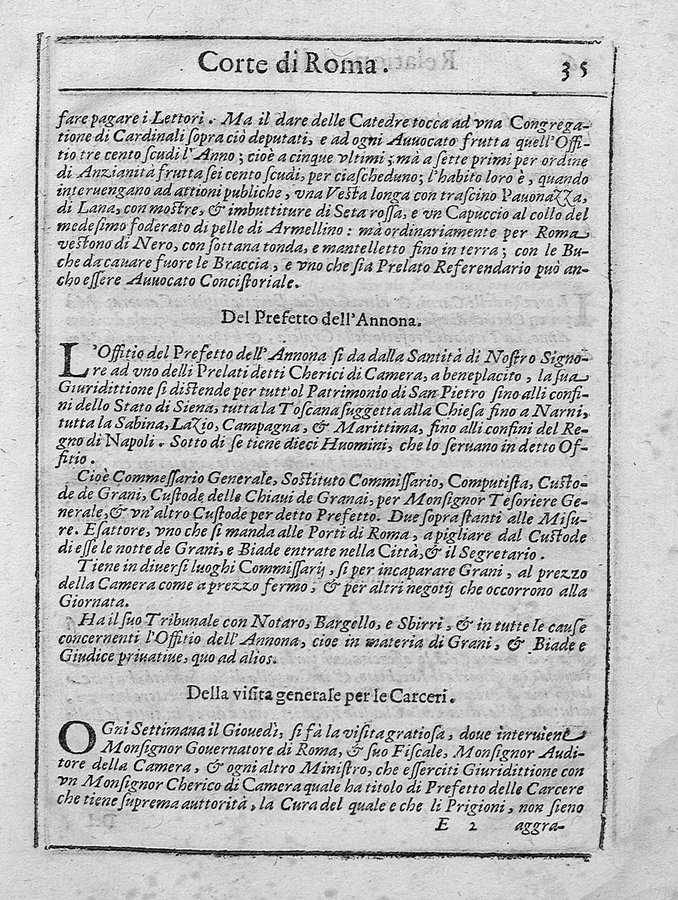 Corte di Roma. 35
fare pagare i Lettori. Ma il dare delle Catedre tocca ad vna Congrega-
tione di Cardinali sopra ciò deputati, e ad ogni Auuocato frutta quell'Offi-
tio tre cento scudi l'Anno; cioè a cinque vltimi; mà a sette primi per ordine
di Anzianità frutta sei cento scudi, per ciascheduno; l'habito loro è, quando
interuengano ad attioni publiche, vna Vesta longa con trascino Pauonazza,
di Lana, con mostre, & imbuttiture di Seta rossa, e vn Capuccio al collo del
medesimo foderato di pelle di Armellino: mà ordinariamente per Roma
vestono di Nero, con sottana tonda, e mantelletto fino in terra; con le Bu-
che da cauare fuore le Braccia, e vno che sia Prelato Referendario può an-
cho essere Auuocato Concistoriale.
Del Prefetto dell'Annona.
L'Offitio del Prefetto dell'Annona si da dalla Santità di Nostro Signo-
re ad vno delli Prelati detti Cherici di Camera, a beneplacito, la sua
Giuridittione si distende per tutt'ol Patrimonio di San Pietro sino alli confi-
ni dello Stato di Siena, tutta la Toscana suggetta alla Chiesa fino a Narni,
tutta la Sabina, Lazio, Campagna, & Marittima, fino alli confini del Re-
gno di Napoli. Sotto di se tiene dieci Huomini, che lo seruano in detto Of-
fitio.
Cioè Commessario Generale, Sostituto Commissario, Computista, Custo-
de de Grani, Custode delle Chiaui de Granai, per Monsignor Tesoriere Ge-
nerale, & vn'altro Custode per detto Prefetto. Due soprastanti alle Misu-
re. Esattore, vno che si manda alle Porti di Roma, a pigliar dal Custode
di esse le notte de Grani, e Biade entrate nella Città, & il Segretario.
Tiene in diuersi luoghi Commissarij, si per incaparare Grani, al prezzo
della Camera come a prezzo fermo, & per altri negotij che occorrono alla
Giornata.
Ha il suo Tribunale con Notaro, Bargello, e Sbirri, & in tutte le cause
concernenti l'Offitio dell'Annona, cioe in materia di Grani, & Biade e
Giudice priuatiue, quo ad alios.
Della visita generale per le Carceri.
OGni Settimana il Giouedì, si fà la visita gratiosa, doue interuiene
Monsignor Gouernatore di Roma, & suo Fiscale, Monsignor Audi-
tore della Camera, & ogni altro Ministro, che esserciti Giuridittione con
vn Monsignor Cherico di Camera quale ha titolo di Prefetto delle Carcere
che tiene suprema auttorità, la Cura del quale e che li Prigioni, non sieno
E 2 aggra-